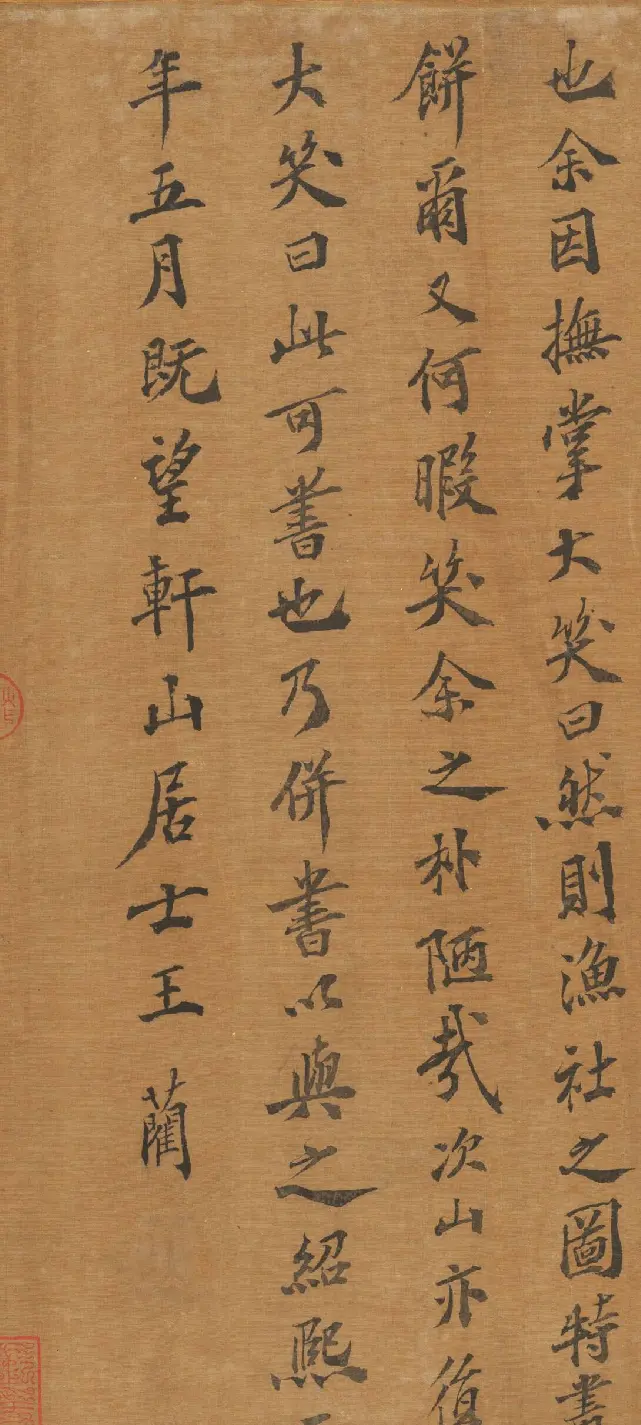 也余因撫掌大笑曰然則漁社之圖特畫
餅爾又何暇笑余之朴陋哉次山亦復
大笑曰此可書也乃併書以與之紹熙
年五月既望軒山居士王藺